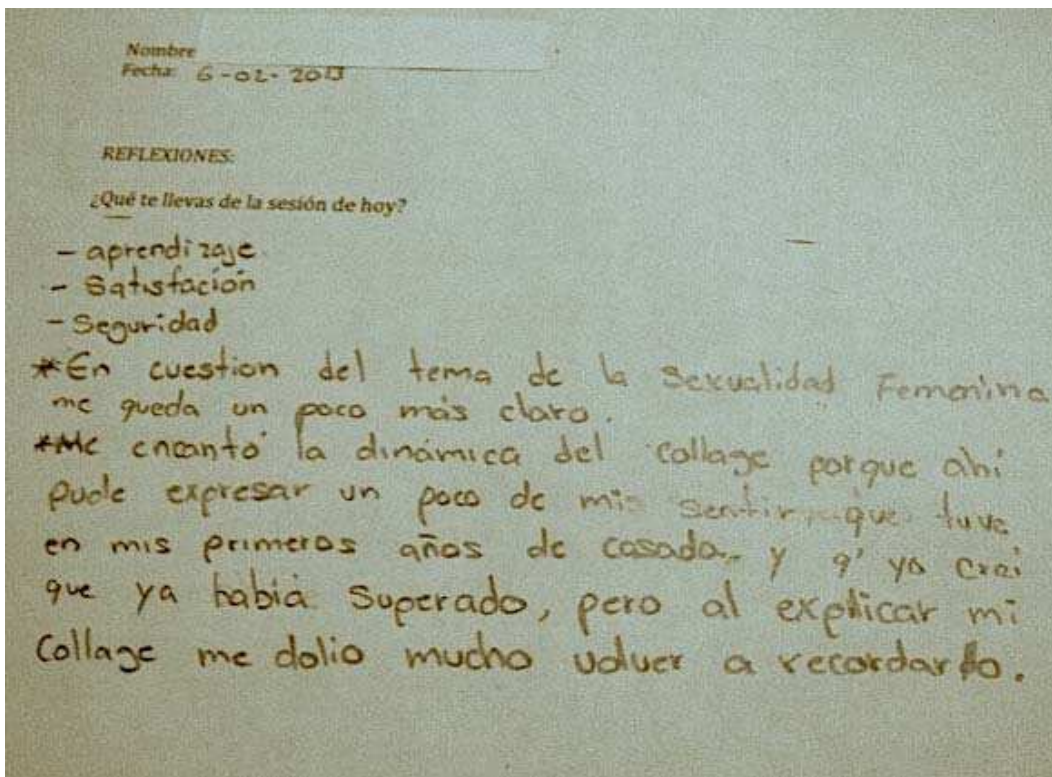 Nombre
Fecha: 6-02-2013
REFLEXIONES:
¿Qué te llevas de la sesión de hoy?
- aprendizaje
- Satisfación
- Seguridad
*En cuestion del tema de la Sexualidad Femenina
me queda un poco más claro.
*Me encantó la dinámica del collage porque ahí
pude expresar un poco de mi sentir que tuve
en mis primeros años de casada, y q' yo crei
que ya había superado, pero al explicar mi
Collage me dolio mucho volver a recordarlo.